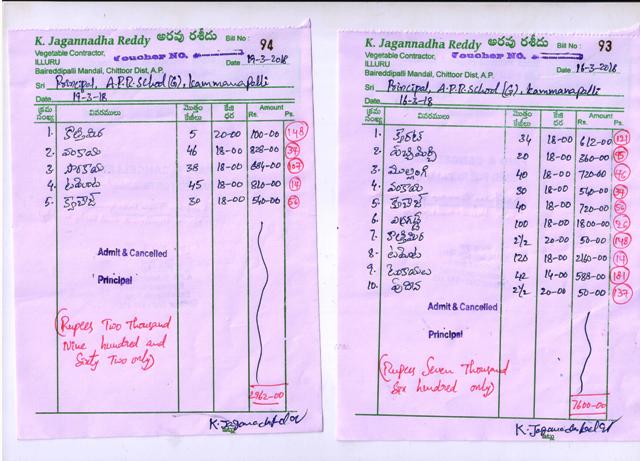 K. Jagannadha Reddy అరవు రశీదు Bill No :
94
Vegetable Contractor, Voucher NO.
ILLURU Date 19-3-2018
Baireddipalli Mandal, Chittoor Dist, A.P.
Sri Principal, A.P.R. School (G), Kammanapalli
Date 19-3-18
క్రమ సంఖ్య వివరములు మొత్తం కేజీలు కేజి ధర Amount Rs. Ps.
1. కొత్తిమిర 5 20-00 100-00 148
2. వంకాయ 46 18-00 828-00 37
3. 38 18-00 684-00 107
4. టమోటా 45 18-00 810-00 14
5. 30 18-00 540-00 56
Admit & Cancelled
Principal
(Rupees Two Thousand
Nine hundred and
Sixty Two only)
2962-00
K. Jagannadha Reddy
K. Jagannadha Reddy అరవు రశీదు Bill No :
93
Vegetable Contractor, Voucher NO.
ILLURU Date 16-3-2018
Baireddipalli Mandal, Chittoor Dist, A.P.
Sri Principal, A.P.R. School (G), Kammanapalli
Date 16-3-18
క్రమ సంఖ్య వివరములు మొత్తం కేజీలు కేజి ధర Amount Rs. Ps.
1. క్యారెట్ 34 18-00 612-00 121
2. పచ్చిమిర్చి 20 18-00 360-00
3. ముల్లంగి 40 18-00 720-00
4. వంకాయ 30 18-00 540-00 37
5. 40 18-00 720-00 56
6. 100 18-00 1800-00 26
7. కొత్తిమిర 2½ 20-00 50-00 148
8. టమోటా 120 18-00 2160-00 14
9. 42 14-00 588-00 181
10. పుదీన 2½ 20-00 50-00 137
Admit & Cancelled
Principal
(Rupees Seven Thousand
Six hundred only)
7600-00
K. Jagannadha Reddy